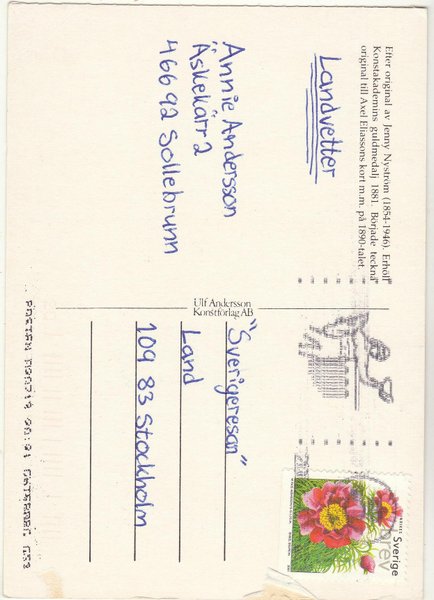 Efter original av Jenny Nyström (1854-1946). Erhöll
Konstakademins guldmedalj 1881. Började teckna
original till Axel Eliassons kort m.m. på 1890-talet.
Landvetter
Annie Andersson
Äskekärr 2
466 92 Sollebrunn
Ulf Andersson
Konstförlag AB
"Sverigeresan"
Land
109 83 Stockholm
Sverige
brev
POSTEN